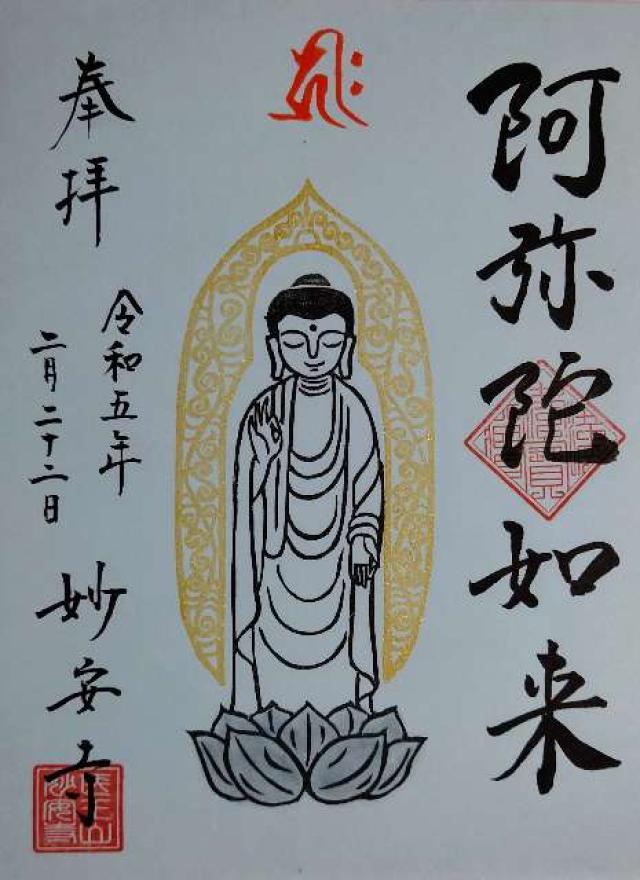 阿弥陀如来
奉拝
令和五年
二月二十二日
妙安寺